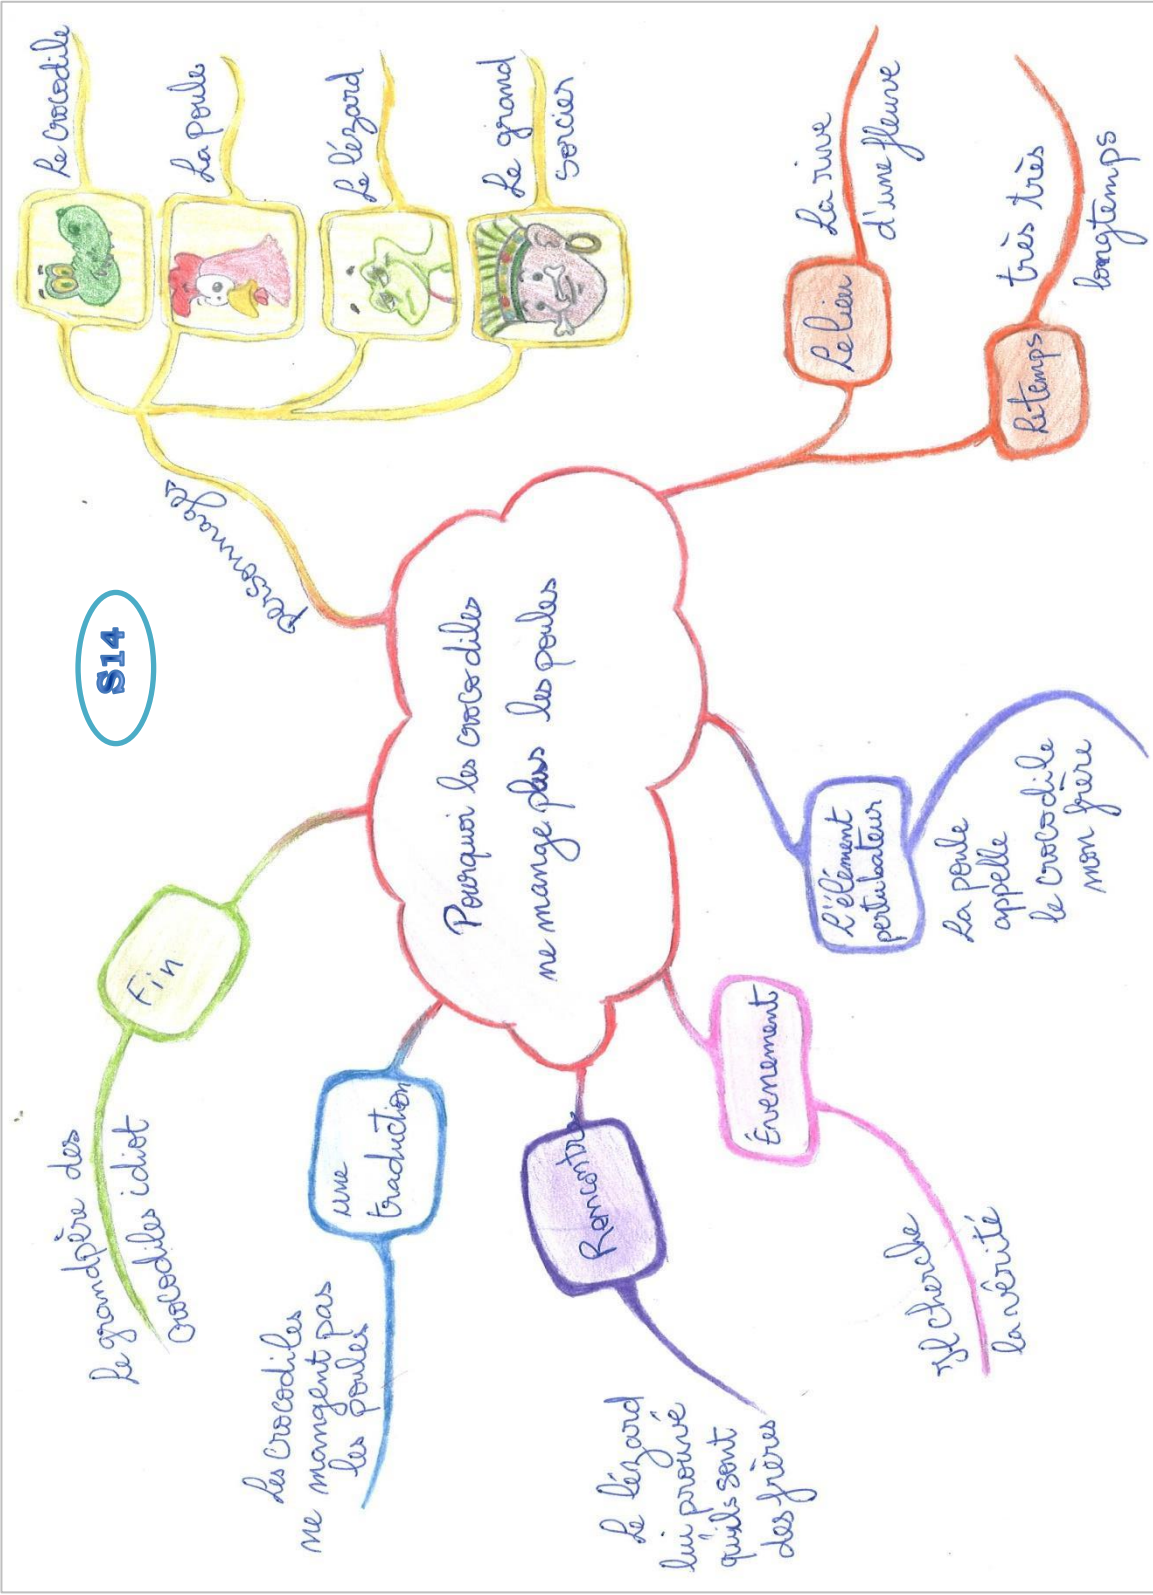 S14
Pourquoi les crocodiles
ne mange plus les poules
personnages
Le Crocodile
La Poule
Le lézard
Le grand
Sorcier
Le lieu
La rive
d'une fleuve
Le temps
très très
longtemps
L'élément
pertubateur
La poule
appelle
le crocodile
mon frère
Évenement
Il cherche
la vérité
Rencontre
Le lézard
lui prouvé
qu'ils sont
des frères
une
traduction
Les Crocodiles
ne mangent pas
les poules
Fin
Le grandpère des
Crocodiles idiot